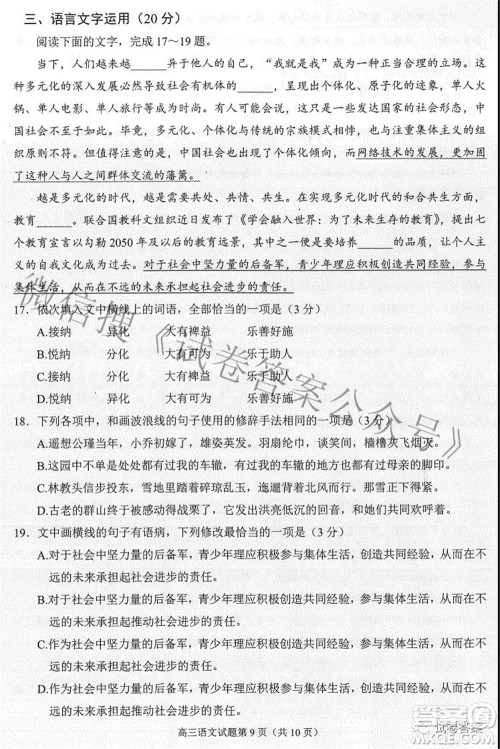 三、语言文字运用（20 分）
阅读下面的文字，完成 17～19 题。
当下，人们越来越______异于他人的自己，“我就是我”成为一种正当合理的立场。这
种多元化的深入发展必然导致社会有结构的______，个体化、原子化的迹象，单人火
锅、单人电影、单人旅行，成为当下社会部分人的时尚追求。这些情况在发达国家存在，
中国社会也不例外，只不过，因为发展阶段和文化传统不同，这些情况在历史上的
中国社会不至如此。毕竟，多元化、与传统的宗族模式相悖，也与注重集体主义的组
织原则不符。因此，当这些现象的出现，中国社会也出现了个体化倾向，而网络技术的发展，更加固
了这种人与人之间群体交流的藩篱。
越是多元化的时代，越是需要共处、共情、共生。在多元化与共同体之间，共生的教
育______。联合国教科文组织近日发布了《学会融入世界：为了未来生存的教育》，提出七
个教育宣言以勾勒 2050 年及以后的教育发展，其中一项便是要培养______的品质，让个人主
义的自我文化成为过去。对于社会中坚力量的后备军，青少年理应积极创造共同经验，参与
集体生活，从在不远的未来承担起社会进步的责任。
17. 依次填入文中横线上的词语，全部恰当的一项是（3 分）
A.接纳　　异化　　大有裨益　　乐善好施
B.悦纳　　分化　　大有可为　　乐于助人
C.接纳　　分化　　大有可为　　乐善好施
D.悦纳　　异化　　大有裨益　　乐于助人
18. 下列各项中，和画波浪线的句子使用的修辞手法相同的一项是（3 分）
A.遥想公瑾当年，小乔初嫁了，雄姿英发。羽扇纶巾，谈笑间，樯橹灰飞烟灭。
B.这田园里处处都有自己的车辙，有过车辙的地方也都有过母亲的脚印。
C.林教头信步投东，雪地里踏着碎琼乱玉，迤逦背着北风而行。
D.古老的群山终于被感动得战栗了，它发出洪亮低沉的回声，和他们共同欢呼。
19. 文中画横线的句子有语病，下列修改最恰当的一项是（3 分）
A.对于社会中坚力量的后备军，青少年理应积极参与集体生活，创造共同经验，从而在不
远的未来承担起社会进步的责任。
B.对于社会中坚力量的后备军，青少年理应积极创造共同经验，参与集体生活，从而在不
远的未来承担起推动社会进步的责任。
C.作为社会中坚力量的后备军，青少年理应积极参与集体生活，创造共同经验，从而在不
远的未来承担起推动社会进步的责任。
D.作为社会中坚力量的后备军，青少年理应积极创造共同经验，参与集体生活，从而在不
远的未来承担起社会进步的责任。
高三语文试题第 9 页（共 10 页）
微信搜《试卷答案公众号》
试卷答案